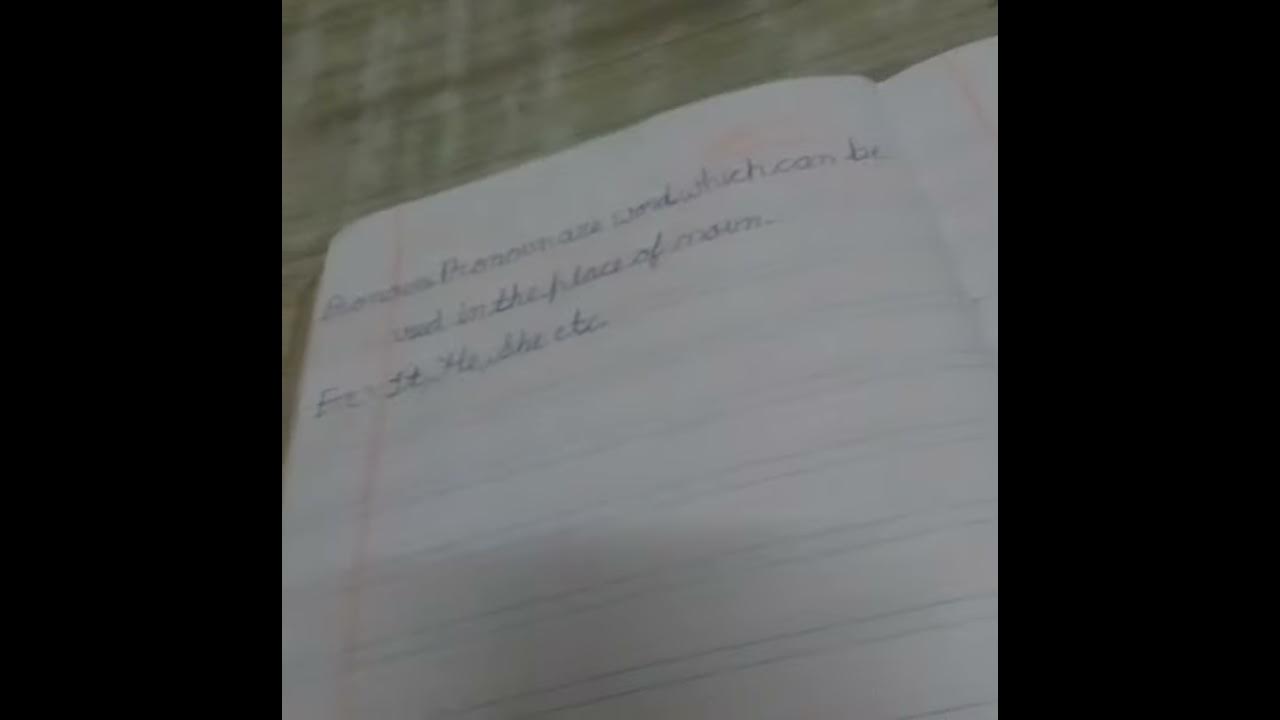 Pronoun Pronoun are word which can be
used in the place of noun.
Ex:- It, He, She etc.